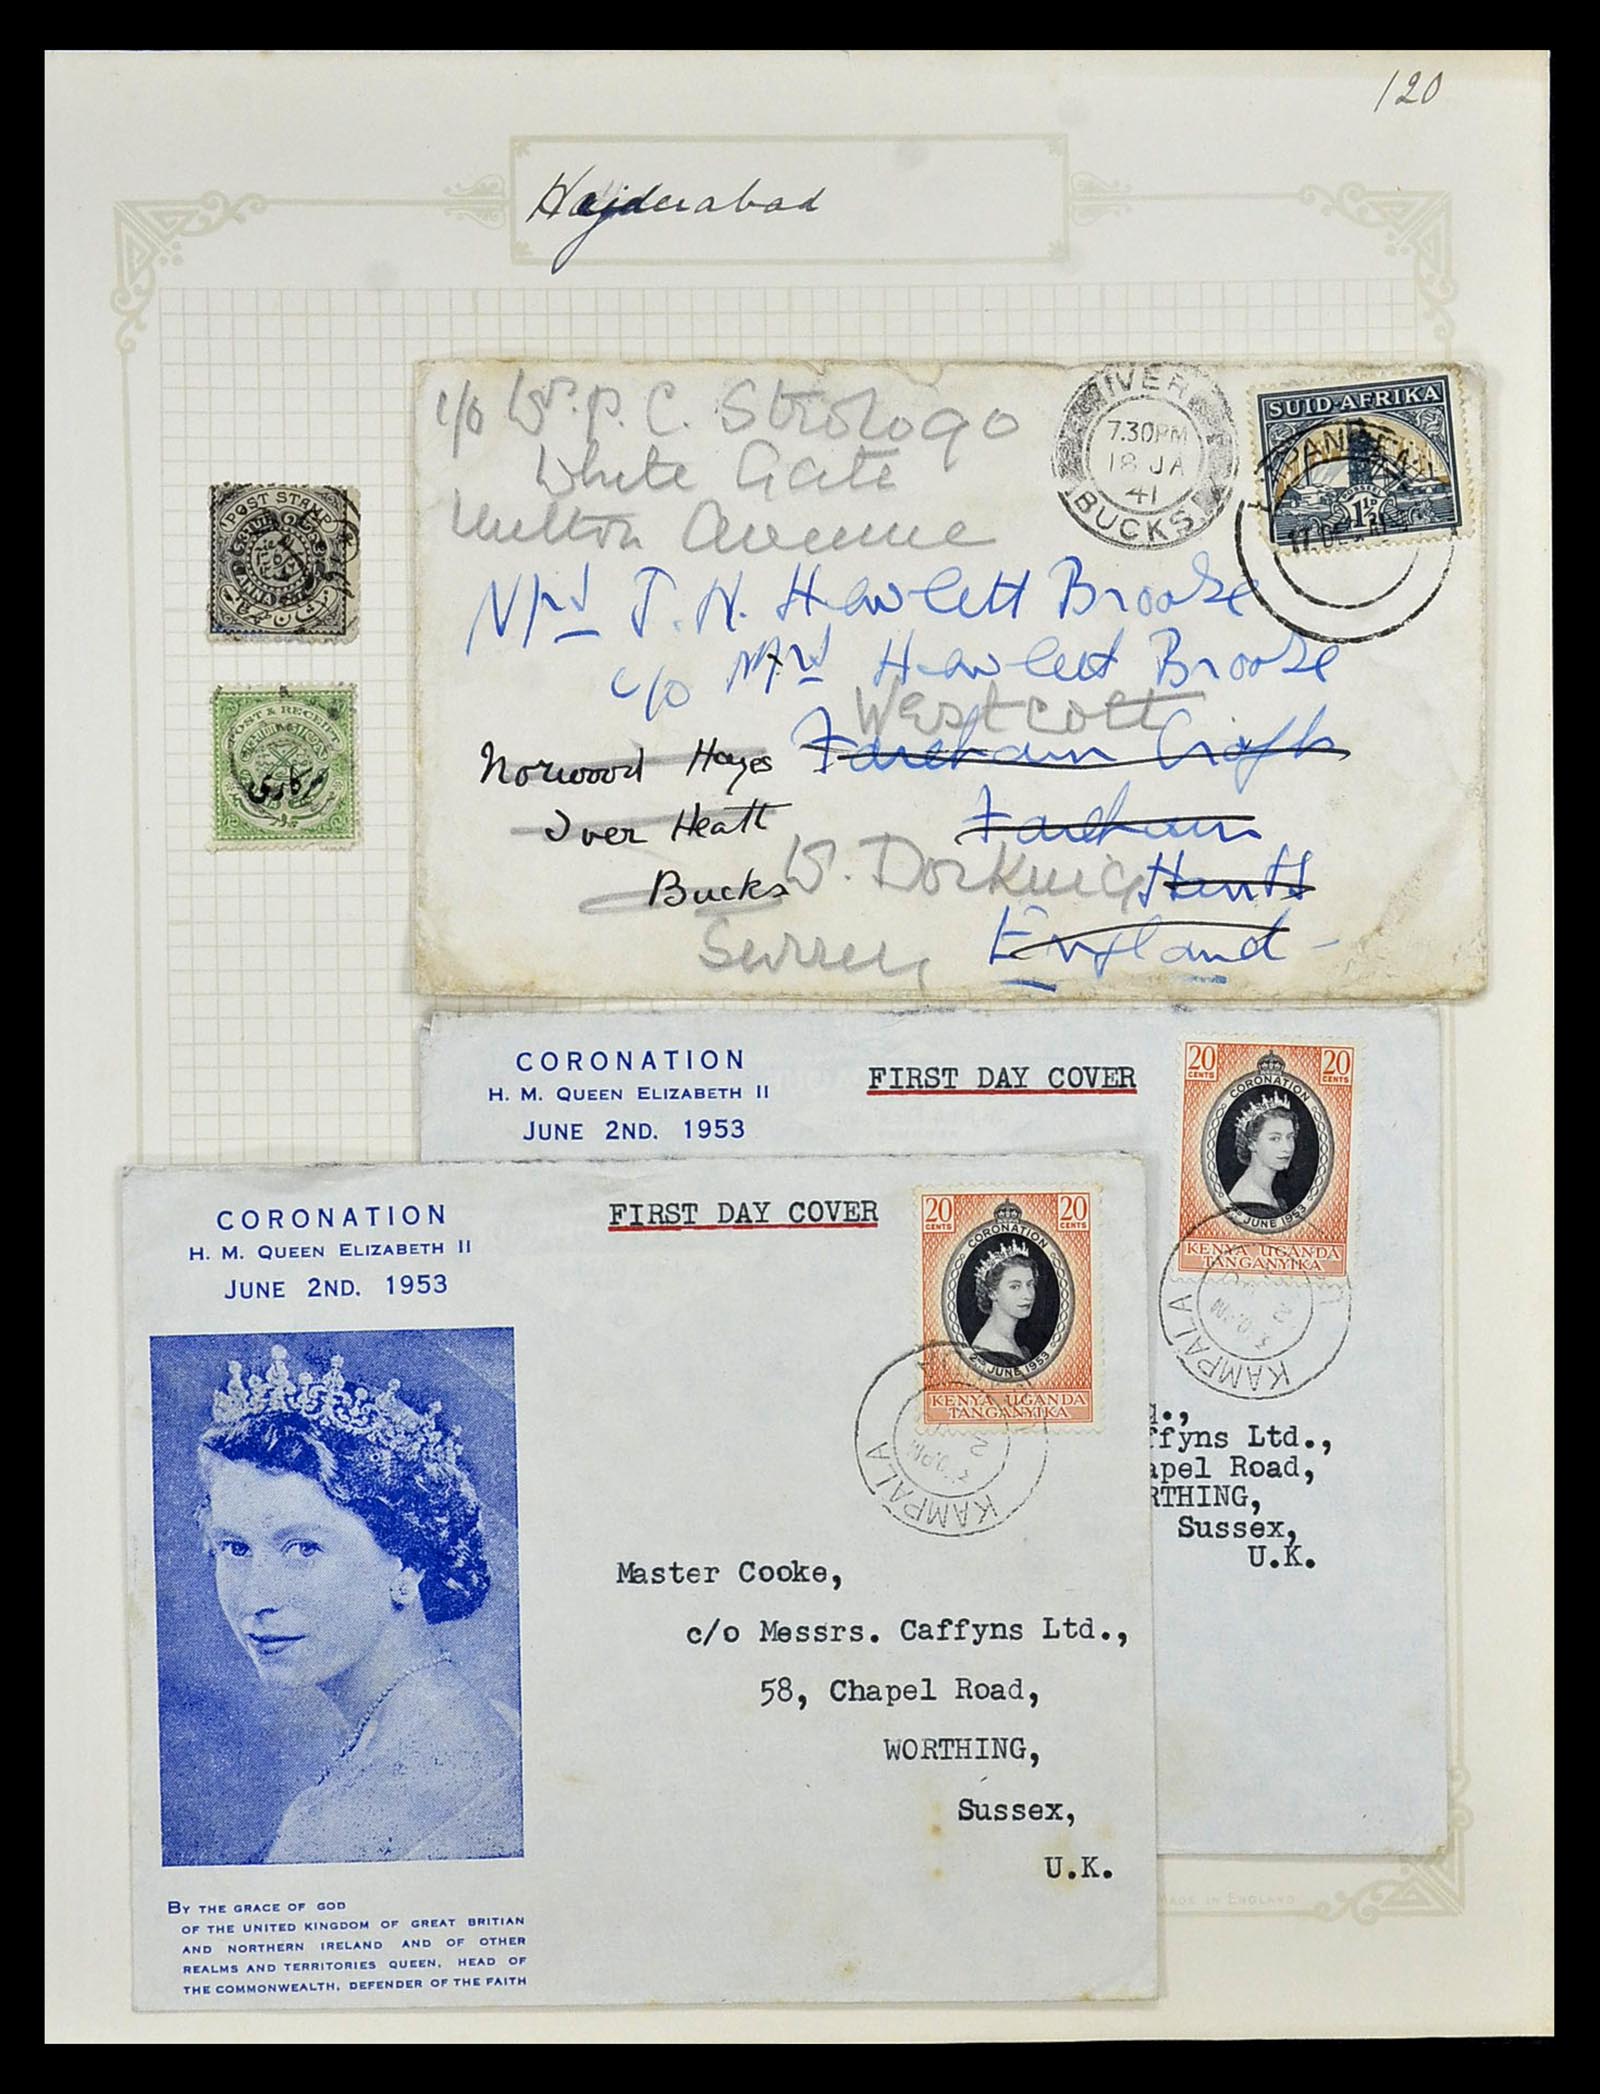 120
Hajderabad
POST STAMP
POST & RECEIPT
سرکاری
c/o
White Gate
Avenue
IVER
7.30PM
18 JA
41
BUCKS
SUID-AFRIKA
1½
J. H. Hewlett Brooke
c/o Mrs Hewlett Brooke
Westcott
Norwood Hayes Fareham Croft
Iver Heath Fareham
Bucks W. Dorking Hants
Surrey England
CORONATION
H. M. QUEEN ELIZABETH II
JUNE 2ND. 1953
FIRST DAY COVER
20 CENTS 20 CENTS
CORONATION
2ND JUNE 1953
KENYA UGANDA
TANGANYIKA
KAMPALA
ffyns Ltd.,
apel Road,
RTHING,
Sussex,
U.K.
CORONATION
H. M. QUEEN ELIZABETH II
JUNE 2ND. 1953
FIRST DAY COVER
20 CENTS 20 CENTS
CORONATION
2ND JUNE 1953
KENYA UGANDA
TANGANYIKA
KAMPALA
Master Cooke,
c/o Messrs. Caffyns Ltd.,
58, Chapel Road,
WORTHING,
Sussex,
U.K.
BY THE GRACE OF GOD
OF THE UNITED KINGDOM OF GREAT BRITIAN
AND NORTHERN IRELAND AND OF OTHER
REALMS AND TERRITORIES QUEEN, HEAD OF
THE COMMONWEALTH, DEFENDER OF THE FAITH
MADE IN ENGLAND